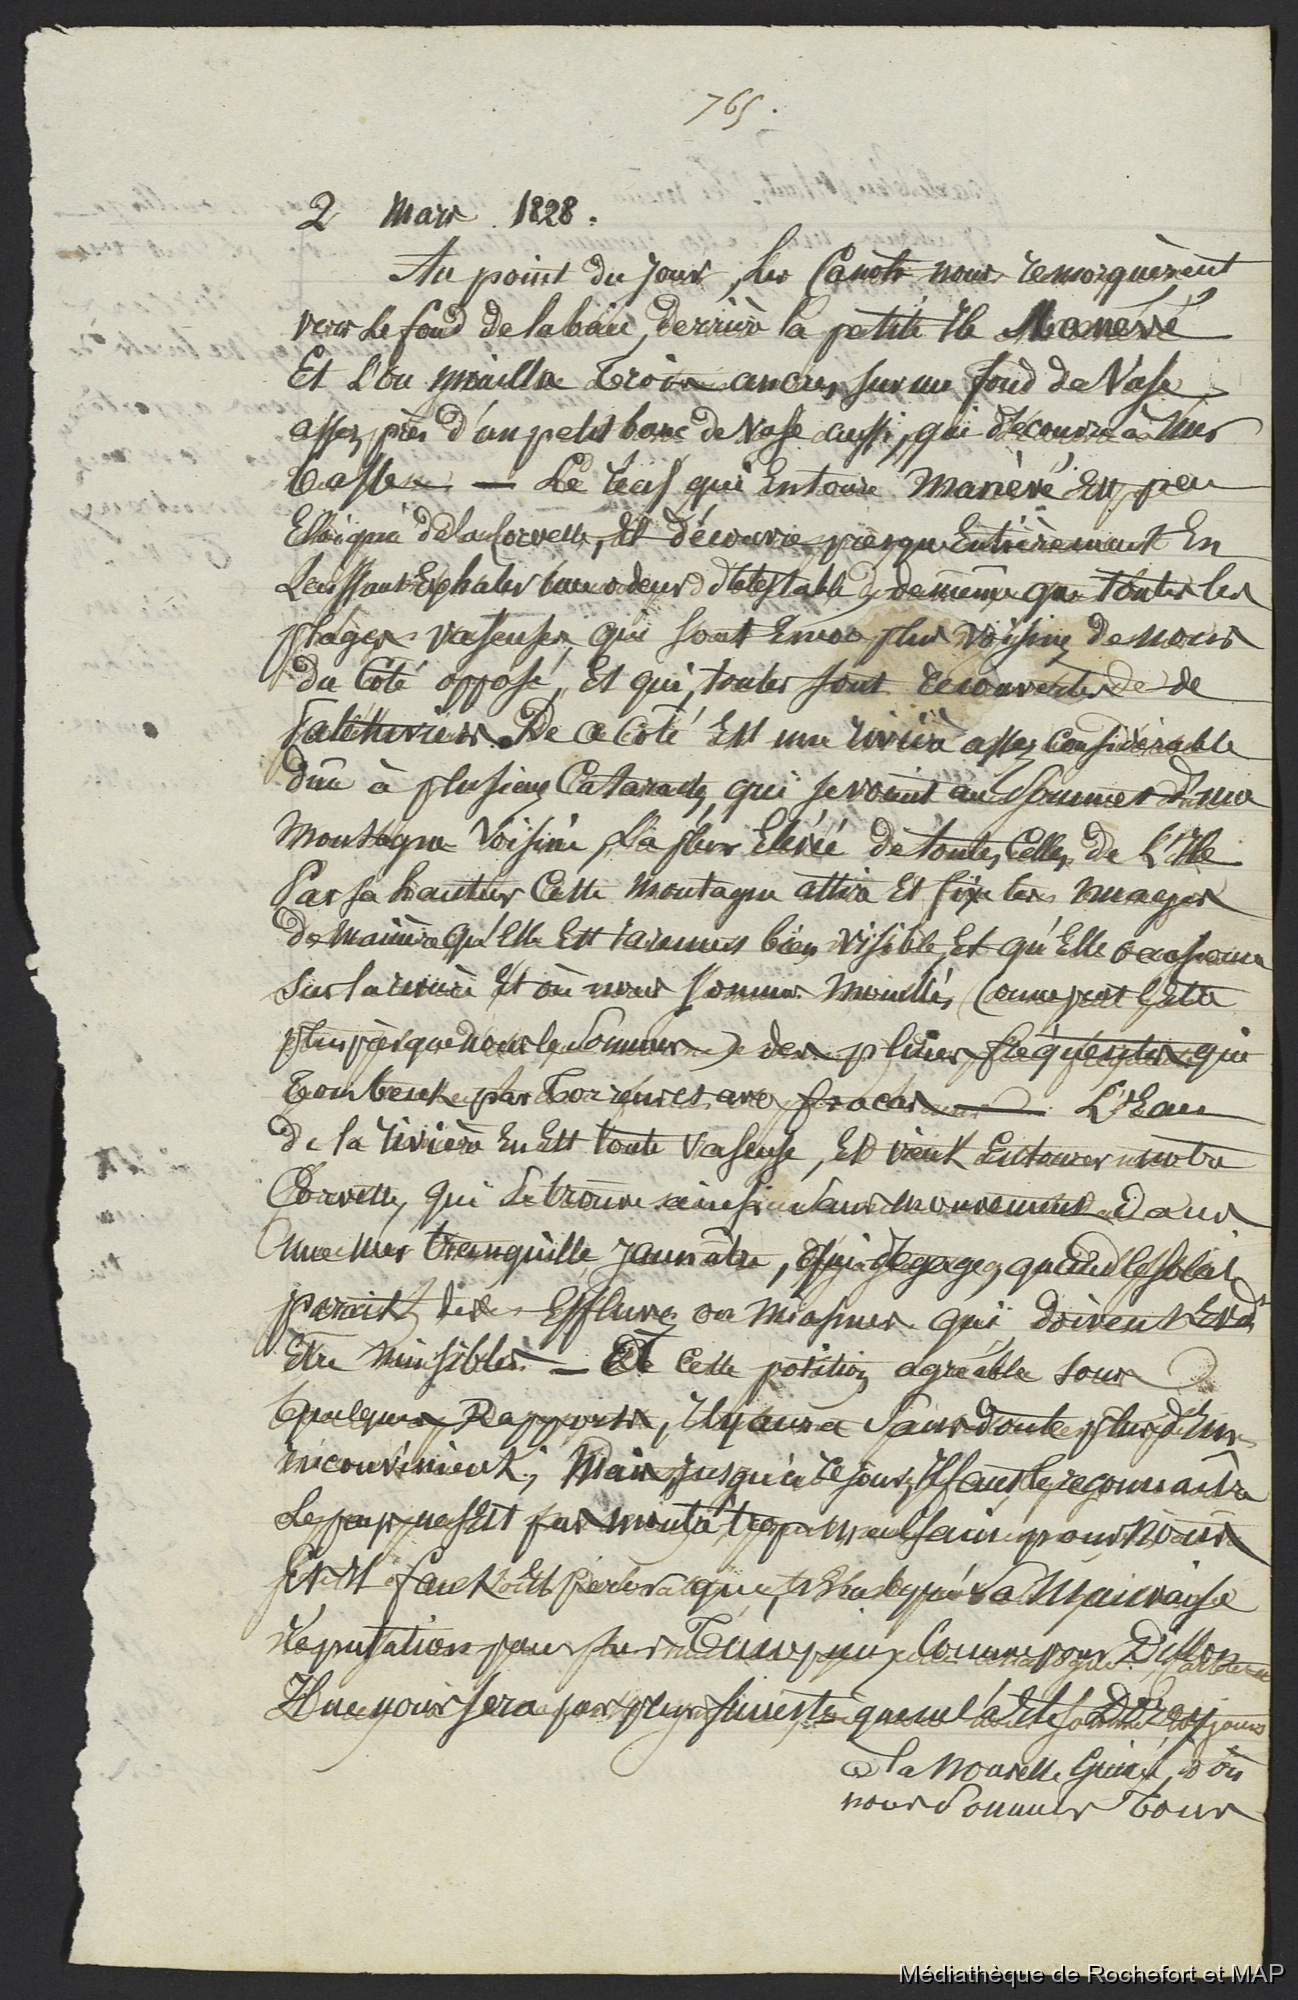 765.
2 Mars 1828.
Au point du jour, les Canots nous remorquèrent
vers le fond de la baie, derrière la petite Ile Manévé
Et l'on mouilla trois ancres, sur un fond de Vase,
assez près d'un petit banc de Vase aussi, qui découvre à mer
basse — Le récif qui Entoure Manévé Est peu
Eloigné de la Corvette, et découvre presqu'Entièrement En
Laissant Exhaler une odeur détestable, de même que toutes les
plages vaseuses, qui sont Encore plus voisines de nous
du Coté opposé, Et qui, toutes sont recouvertes de
Palétuviers. De ce Coté Est une rivière assez considérable
dûe à plusieurs Cataractes, qui se voient au Sommet d'une
Montagne Voisine, la plus Elevée de toutes Celles de L'Ile
Par sa hauteur Cette Montagne attire Et fixe les nuages
de Manière qu'Elle Est rarement bien Visible, Et qu'Elle occasionne
sur la rivière Et où nous sommes Mouillés, (on ne peut Etre
plus près que nous le Sommes) des pluies fréquentes qui
tombent par Torrents avec fracas — L'Eau
de la rivière En Est toute Vaseuse, Et vient Entourer notre
Corvette, qui Se trouve ainsi Sans mouvement dans
une mer tranquille, jaunâtre, d'où Se dégagent, quand le Soleil
parait, des Effluves ou Miasmes qui doivent
Etre nuisibles — De cette position agréable sous
quelques Rapports, il y aura Sans doute plus d'un
inconvénient; Mais jusqu'à ce jour, il faut le reconnaître
Le pays ne s'Est pas montré trop malsain pour nous
réputation Comme pour Dillon
Il ne nous sera pas plus funeste que
à la Nouvelle Guinée, d'où
nous Sommes Tous